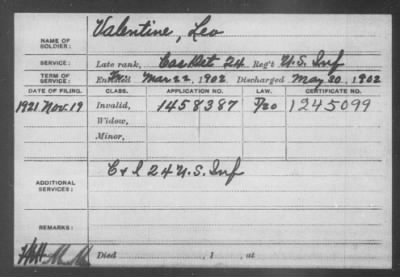 NAME OF SOLDIER: Valentine, Leo
SERVICE: Late rank, Cas Det 24 Reg't U.S. Inf
TERM OF SERVICE: Enlisted Mar 22, 1902 Discharged May 30, 1902
DATE OF FILING. CLASS. APPLICATION NO. LAW. CERTIFICATE NO.
1921 Nov. 19 Invalid, 1458387 1245099
Widow,
Minor,
ADDITIONAL SERVICES: C & I 24 U.S. Inf
REMARKS:
Died , 1 , at